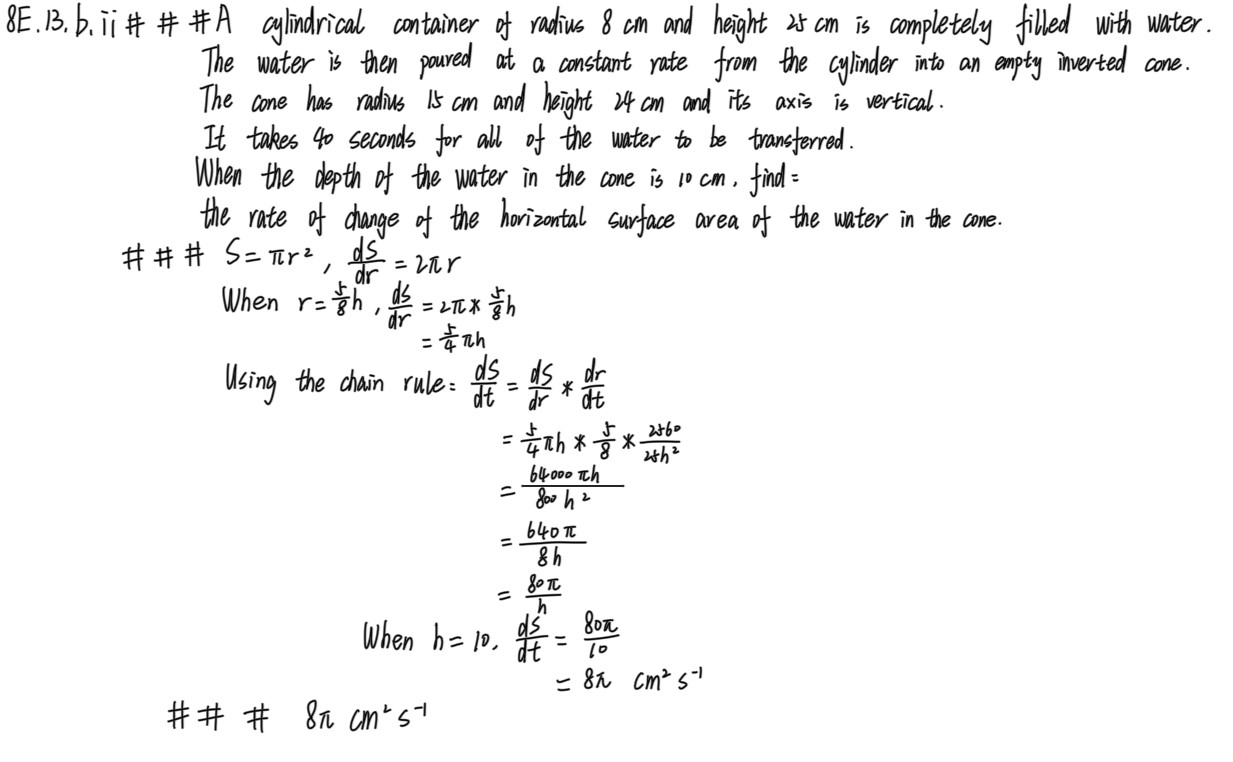 8E.13.b.ii # # # A cylindrical container of radius 8 cm and height 25 cm is completely filled with water.
The water is then poured at a constant rate from the cylinder into an empty inverted cone.
The cone has radius 15 cm and height 24 cm and its axis is vertical.
It takes 40 seconds for all of the water to be transferred.
When the depth of the water in the cone is 10 cm, find:
the rate of change of the horizontal surface area of the water in the cone.
# # # S = πr², dS/dr = 2πr
When r = 5/8 h, dS/dr = 2π * 5/8 h
= 5/4 πh
Using the chain rule: dS/dt = dS/dr * dr/dt
= 5/4 πh * 5/8 * 2560/25h²
= 64000πh/800h²
= 640π/8h
= 80π/h
When h = 10, dS/dt = 80π/10
= 8π cm² s⁻¹
# # # 8π cm² s⁻¹